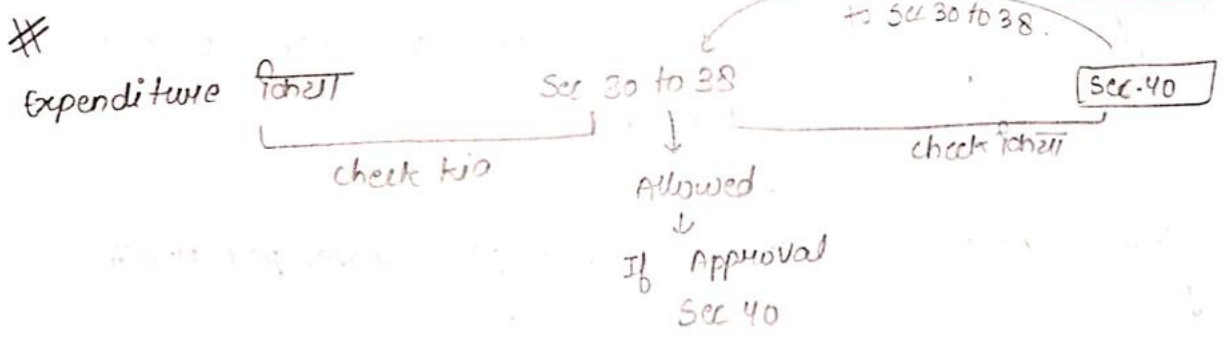 #
to Sec 30 to 38.
Expenditure किया Sec 30 to 38 Sec-40
check kia check किया
Allowed
If Approval
Sec 40